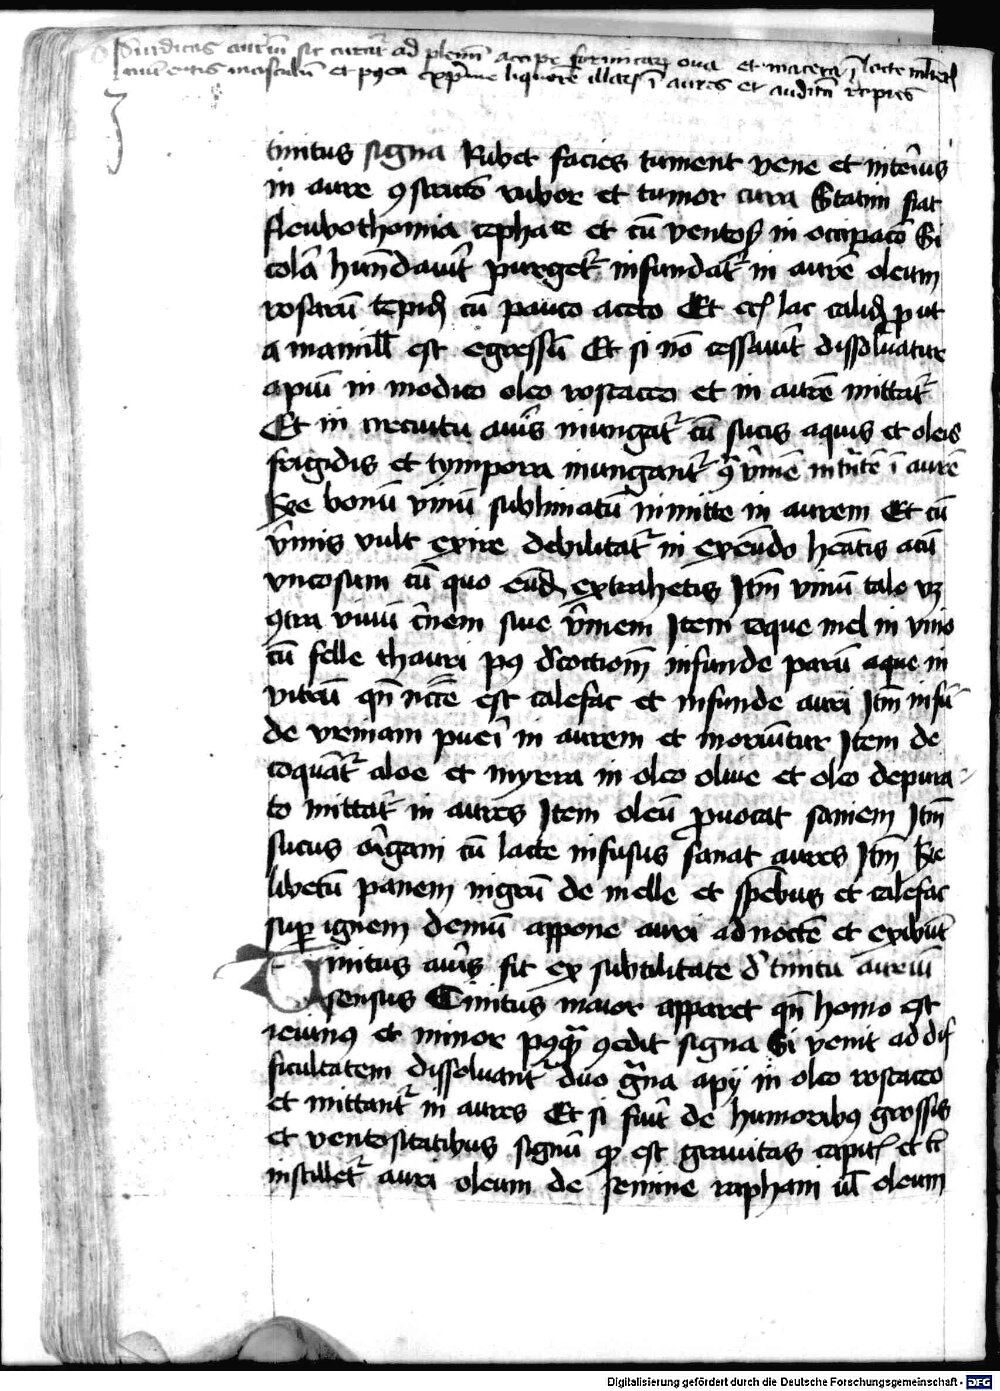 Surditas auriū sic curat̄ ad plenū accipe formicaꝝ oua et macera ī lacte mulieris
nutrientis masculū et postea exprime liquorē illaꝝ ī aures et auditū recipies
tinitus signa Rubet facies tument vene et interius
in aure ꝯstricto rubor et tumor cura Statim fiat
fleubothomia cephace et cū ventoß in occipicō Si
colā hūndauit purget̄ infundat̄ in aurē oleum
rosarū tepid cū pauco aceto Et lac calid ꝓut
a mamill est egressū Et si nō cessauit dissoluatur
apiū in modico oleo rosaceo et in aurē mittat̄
Et in circuitu auris iniungat̄ cū sucis aquis et oleis
frigidis et tympora inungant̄ ꝯ vermē intrātē ī aurē
Rec bonū vinū sublimatū inmitte in aurem Et cū
vermis vult exire debilitat̄ in exeūdo heatis acū
vncosum cū quo eūd extrahetis Itm̄ vinū tale vꝫ
ꝯtra viuū c̄nem siue vermem Item coque mel in vino
cū felle thauri pꝯ decoctionē infunde parū aque in
vitrū qn̄ necē est calefac et infunde auri Itm̄ infū
de vrinam pueri in aurem et moriūtur Item de
coquāt̄ aloe et myrra in oleo oliue et oleo depura
to mittat̄ in aures Item oleū ꝓuocat saniem Itm̄
sucus origani cū lacte infusus sanat aures Itm̄ Rec
libetū panem nigrū de melle et spēbus et calefac
suꝑ ignem demū appone auri ad noctē et exibūt
Tinitus auris fit ex subtilitate de tinitu auriū
sensus Tinitus maior apparet qn̄ homo est
ieiunꝯ et minor pꝯqua ꝯedit signa Si venit ad dif
ficultatem dissoluant̄ duo grana apij in oleo rosaceo
et mittant̄ in aures Et si fuit de humoribꝯ grossis
et ventositatibus signū est grauitas capit et c̄
instillet̄ auri oleum de semine raphani ul oleum
Digitalisierung gefördert durch die Deutsche Forschungsgemeinschaft - DFG